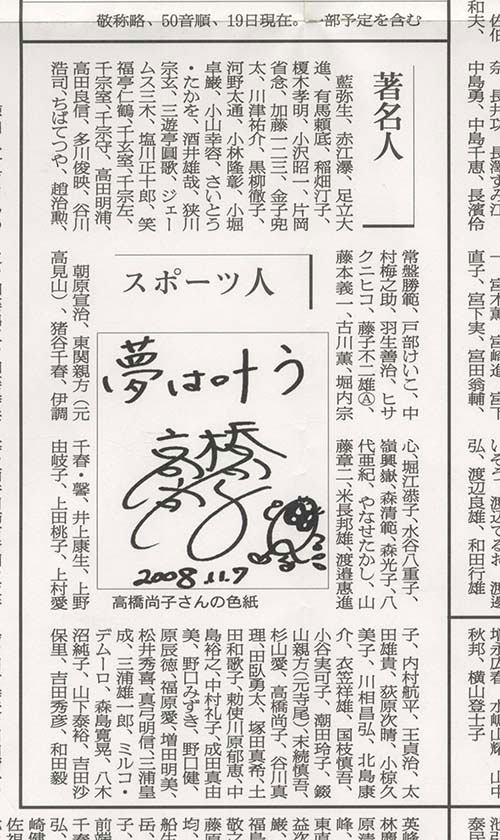 敬称略、50音順、19日現在。一部予定を含む
和夫、
中島勇、中島千恵、長濱伶
一、宮木薫、宮崎進、宮下
直子、宮下実、宮田翁輔、
弘、渡辺良雄、和田行雄
秋邦、横山登士子
著名人
藍弥生、赤江瀑、足立大
進、有馬頼底、稲畑汀子、
榎木孝明、小沢昭一、片岡
省念、加藤一二三、金子兜
太、川津祐介、黒柳徹子、
河野太通、小林隆彰、小堀
卓巌、小山幸容、さいとう
・たかを、酒井雄哉、狭川
宗玄、三遊亭圓歌、ジェー
ムス三木、塩川正十郎、笑
福亭仁鶴、千玄室、千宗左、
千宗室、千宗守、高田明浦、
高田良信、多川俊映、谷川
浩司、ちばてつや、趙治勲、
常盤勝範、戸部けいこ、中
村梅之助、羽生善治、ヒサ
クニヒコ、藤子不二雄Ⓐ、
藤本義一、古川薫、堀内宗
心、堀江恭子、水谷八重子、
嶺興嶽、森清範、森光子、八
代亜紀、やなせたかし、山
藤章二、米長邦雄、渡邉惠進
スポーツ人
夢は叶う
高橋尚子
2008.11.7
高橋尚子さんの色紙
朝原宣治、東関親方（元
高見山）、猪谷千春、伊調
千春・馨、井上康生、上野
由岐子、上田桃子、上村愛
子、内村航平、王貞治、太
田雄貴、荻原次晴、小椋久
美子、川相昌弘、北島康
介、衣笠祥雄、国枝慎吾、
小谷実可子、潮田玲子、錣
山親方（元寺尾）、末続慎吾、
杉山愛、高橋尚子、谷川真
理、田臥勇太、塚田真希、土
田和歌子、勅使川原郁恵、中
島裕之、中村礼子、成田真由
美、野口みずき、野口健、
原辰徳、福原愛、増田明美、
松井秀喜、真弓明信、三浦皇
成、三浦雄一郎、ミルコ・
デムーロ、森島寛晃、八木
沼純子、山下泰裕、吉田沙
保里、吉田秀彦、和田毅